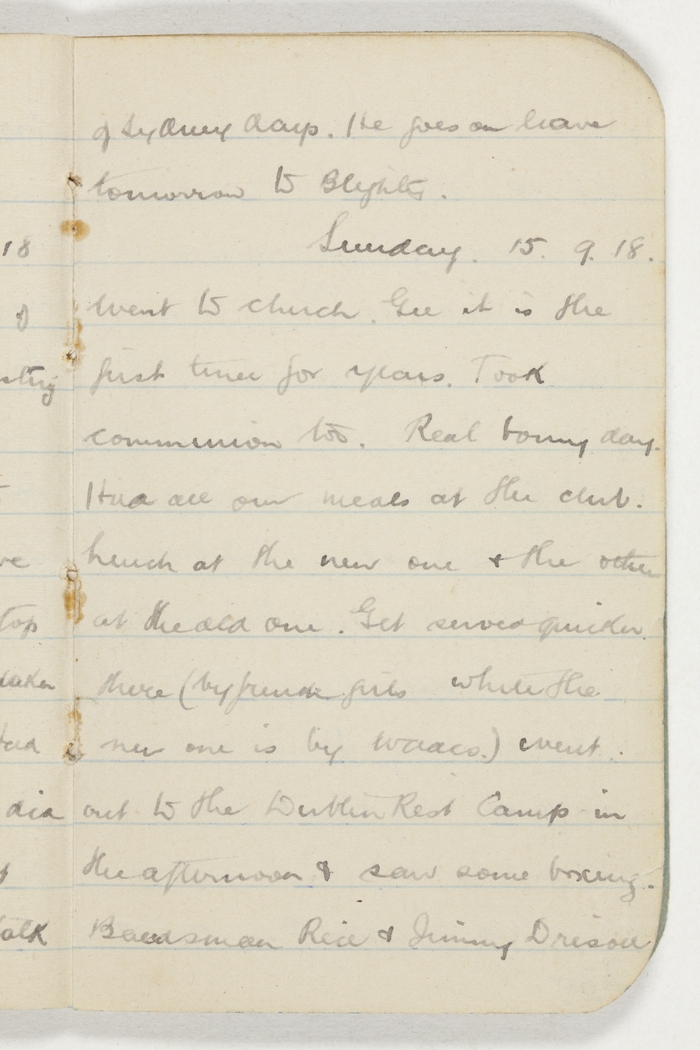 of Sydney days. He goes on leave
tomorrow to Blighty.
Sunday. 15. 9. 18.
18
Went to church. Gee it is the
first time for years. Took
communion too. Real bonny day.
Had all our meals at the club.
Lunch at the new one & the other
at the old one. Get served quicker
top
there (by french girls while the
new one is by Waacs.) Went
out to the Rest Camp in
did
the afternoon & saw some boxing.
Bandsman Rice & Jimmy
talk